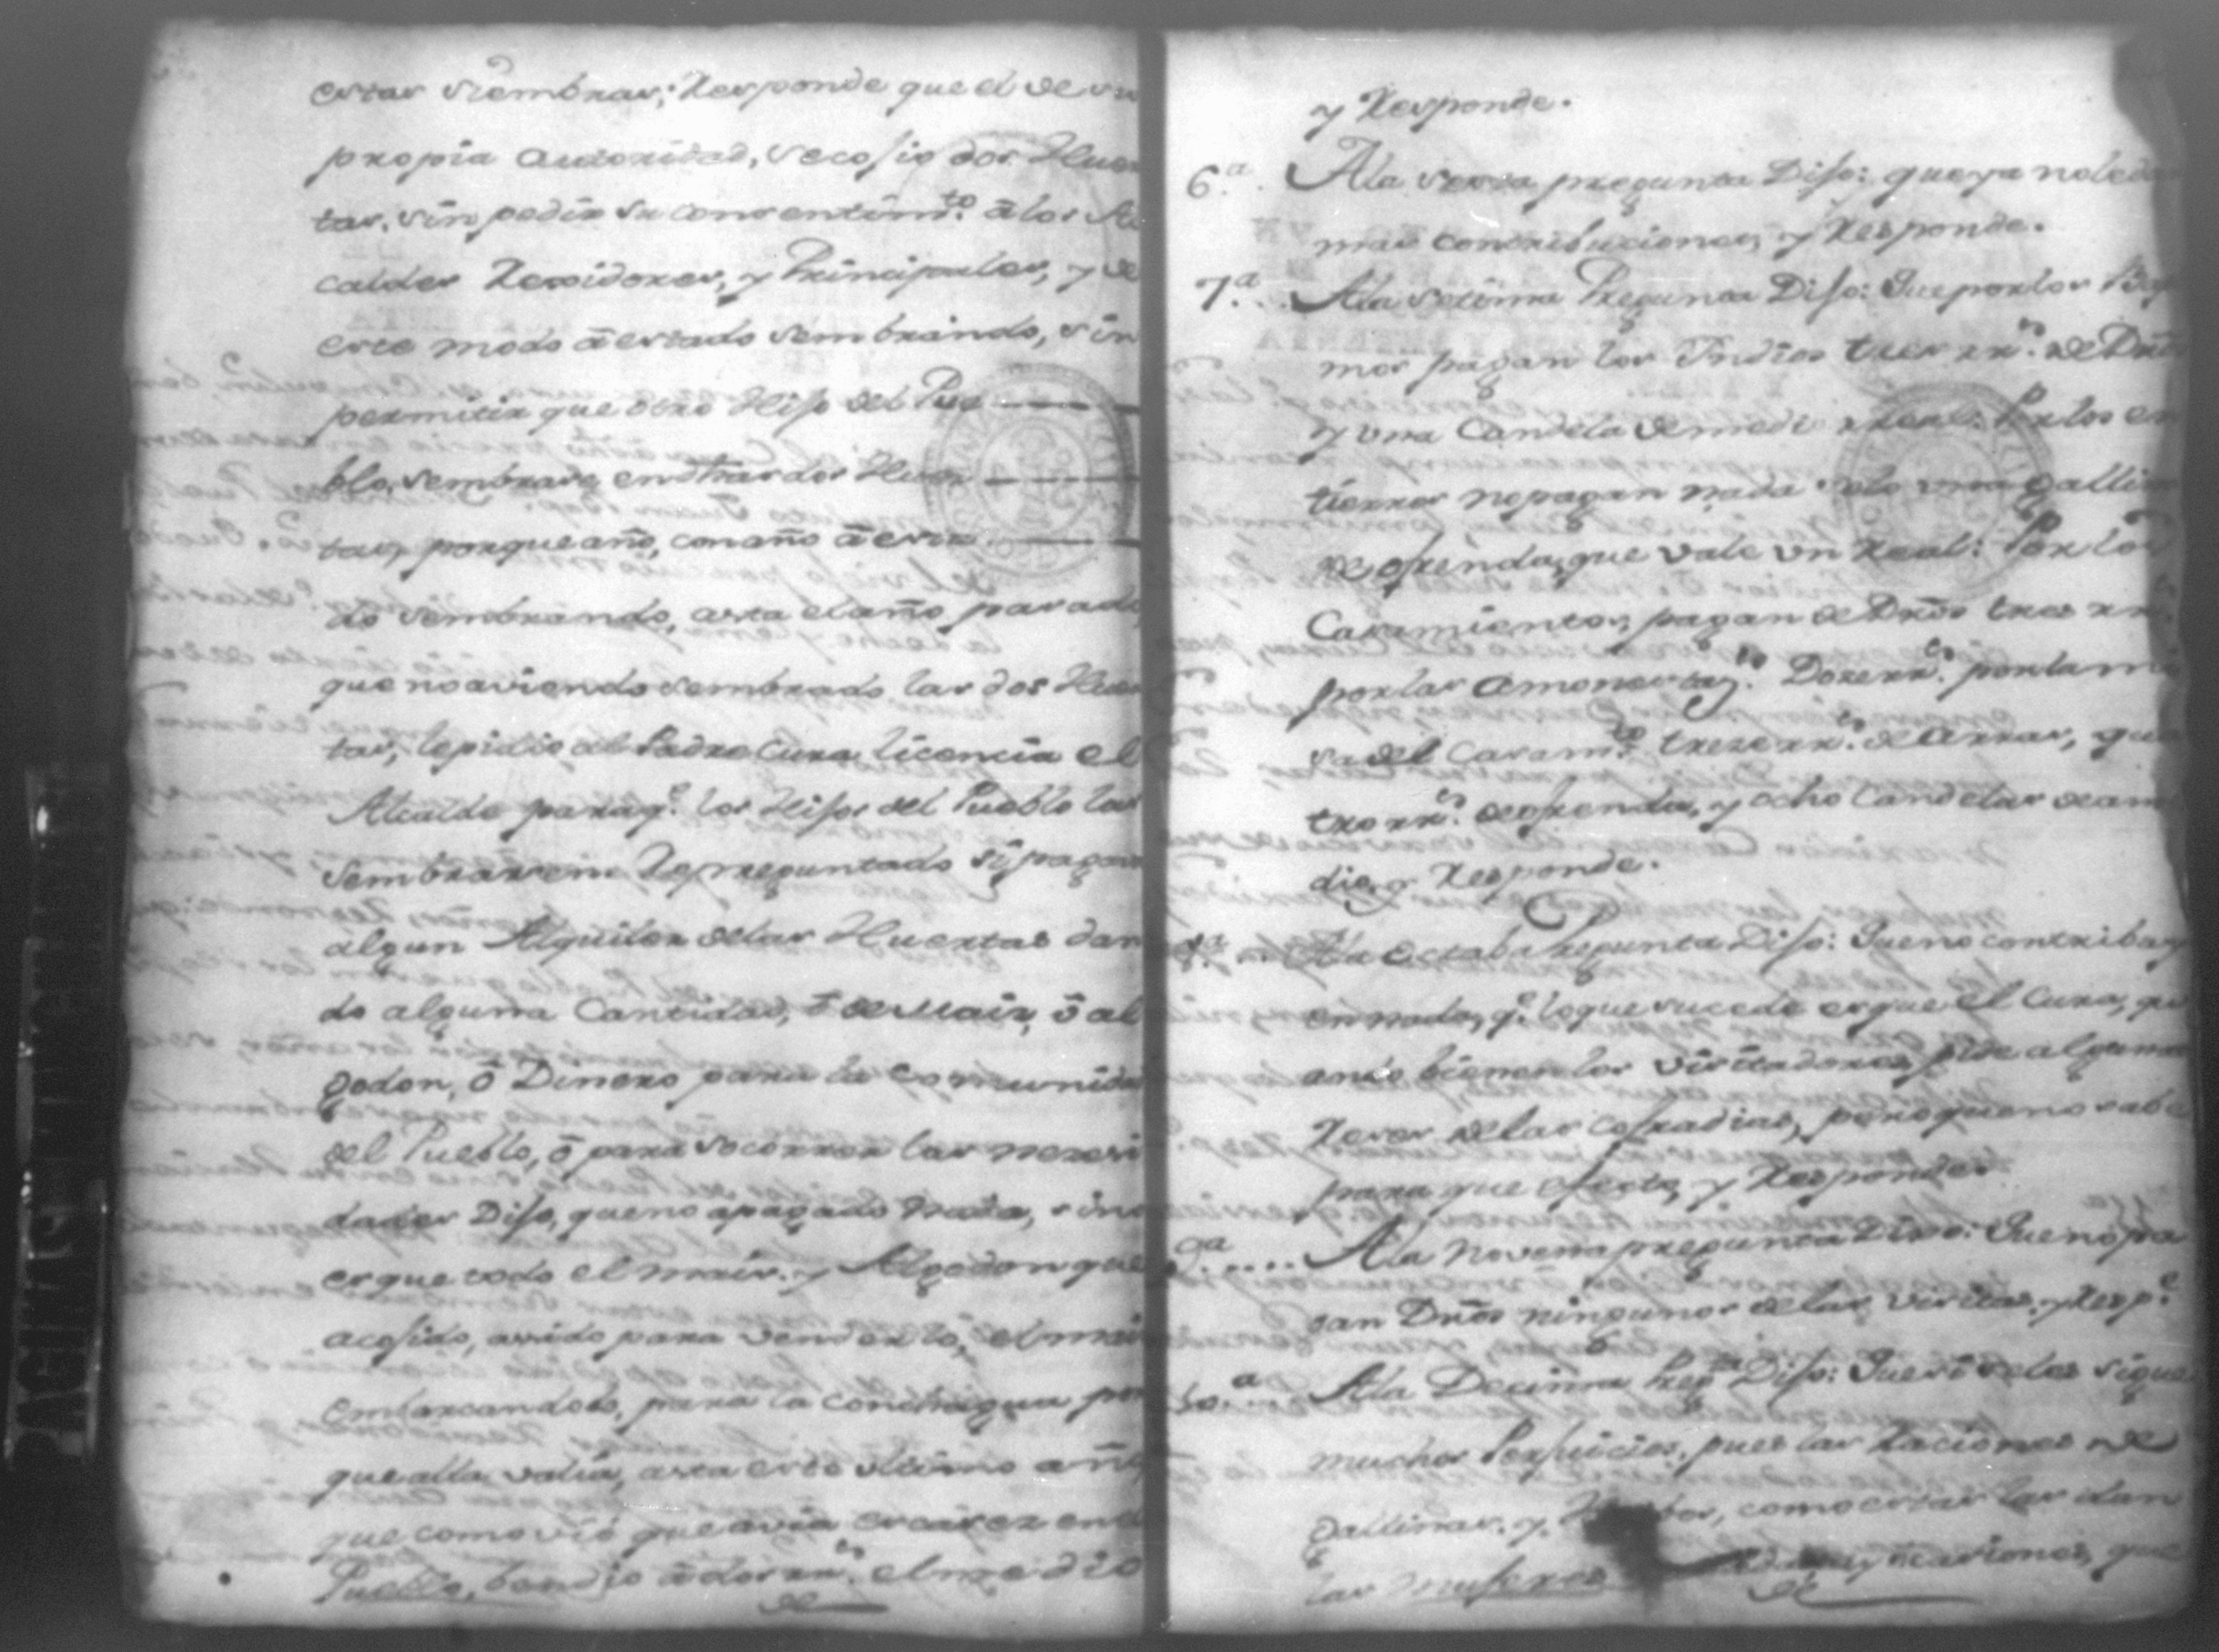 estas siembras; Responde que el de su
propia autoridad, se cosio dos Huer
tas, sin pedir su consentimto. â los Al
caldes Rexidores, y Principales, y de
este modo â estado sembrando, sin
permitir que otro Hijo del Pue
blo, sembrase en otras dos Huer
tas, porque año, con año â esta
do sembrando, asta el año pasado,
que no aviendo sembrado las dos Huer
tas, le pidio al Padre Cura licencia el
Alcalde para qe. los Hijos del Pueblo las
sembrasen: Repreguntado si pagan
algun Alquiler delas Huertas dan
do alguna Cantidad, ô de Mais, ô al
godon, ô Dinero para la Comunida
del Pueblo, ô para socorrer las nezesi
dades Dijo, que no a pagado nada, sino
es que todo el mais, y Algodon que
a cosido, a sido para venderlo, el mai
embarcandolo, para la Conchagua por
que alla valia, asta este ultimo año,
que como vio que avia escases en el
Pueblo, bendio â dos rrs. el medio
de
y Responde.
6.a. Ala sesta pregunta Dijo: que ya no le da
mas contribuciones, y Responde.
7.a... Ala setima Pregunta Dijo: Que por los Bap
mos pagan los Indios tres rrs. de Dro
y una Candela de medio rreal: Por los en
tierros no pagan nada solo una Galli
de ofrenda, que vale un Real: Por los
Casamientos, pagan de Dros tres rrs.
por las amonestazs. Doze rrs. por la mi
sa del Casamto. treze rrs. de Arras, qua
tro rrs. de ofrenda, y ocho Candelas de a me
dio, y Responde.
8.a... Ala Octaba Pregunta Dijo: Que no contribuy
en nada, qe. lo que sucede es que el Cura, qu
ando bienen los visitadores, pide algunas
Reses delas Cofradias, pero que no sabe
para que efecto, y Responde.
9.a.... Ala Novena pregunta Dijo: Que no pa
gan Dros ningunos delas visitas, y Respe.
10.a... Ala Decima Pregta Dijo: Que si se les sigue
muchos Perjuicios, pues las Raciones de
Gallinas, y como estas las dan
las mujeres que
de